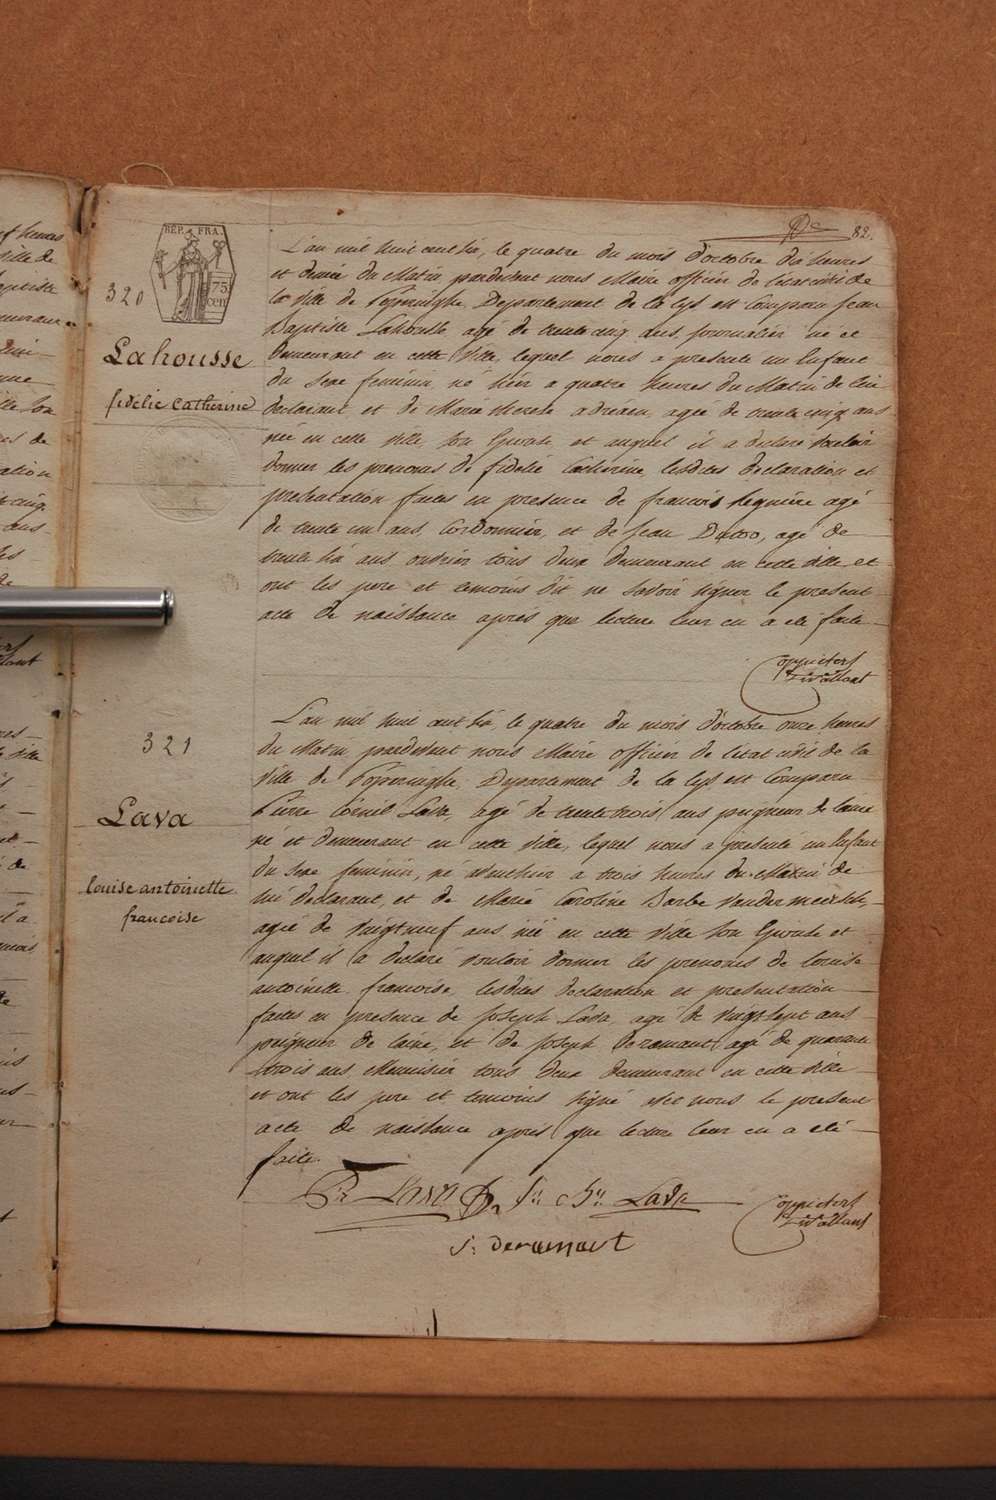 De 82.
RÉP. FRA.
75
cen
320
Lahousse
fidelie Catherine
L'an mil huit cent six, le quatre du mois d'octobre dix heures
et demie du Matin pardevant nous Maire officier de l'état civil de
la ville de Poperinghe, Departement de la Lys est comparu Jean
Baptiste Lahousse agé de trente cinq ans, journalier né et
demeurant en cette ville, lequel nous a presenté un Enfant
du sexe feminin né hier a quatre heures du Matin de lui
declarant et de Marie therese adriaen, agée de trente cinq ans
née en cette ville, son Epouse, et auquel il a declaré vouloir
donner les prenoms de fidelie Catherine, lesdites declaration et
presentation faites en presence de francois Sequiere agé
de trente un ans, Cordonnier, et de Jean agé de
trente six ans ouvrier tous deux demeurant en cette ville et
ont les pere et temoins dit ne savoir signer le present
acte de naissance après que lecture leur en a eté faite
321
Lava
louise antoinette
francoise
L'an mil huit cent six, le quatre du mois d'octobre onze heures
du Matin pardevant nous Maire officier de l'état civil de la
ville de Poperinghe, Departement de la Lys est Comparu
Pierre Corneil Lava, agé de trente trois ans peigneur de laine
né et demeurant en cette ville, lequel nous a presenté un Enfant
du sexe feminin, né avanthier a trois heures du Matin de
lui declarant, et de Marie Caroline Barbe Vandermeersch,
agée de vingtneuf ans née en cette ville son Epouse et
auquel il a declaré vouloir donner les prenoms de louise
antoinette francoise, lesdites declaration et presentation
faites en presence de Joseph Lava agé de vingt sept ans
peigneur de laine, et de Joseph deramaut agé de quarante
trois ans Menuisier tous deux demeurant en cette ville
et ont les pere et temoins signé avec nous le present
acte de naissance après que lecture leur en a eté
faite.
Lava Lava
J: deramaut